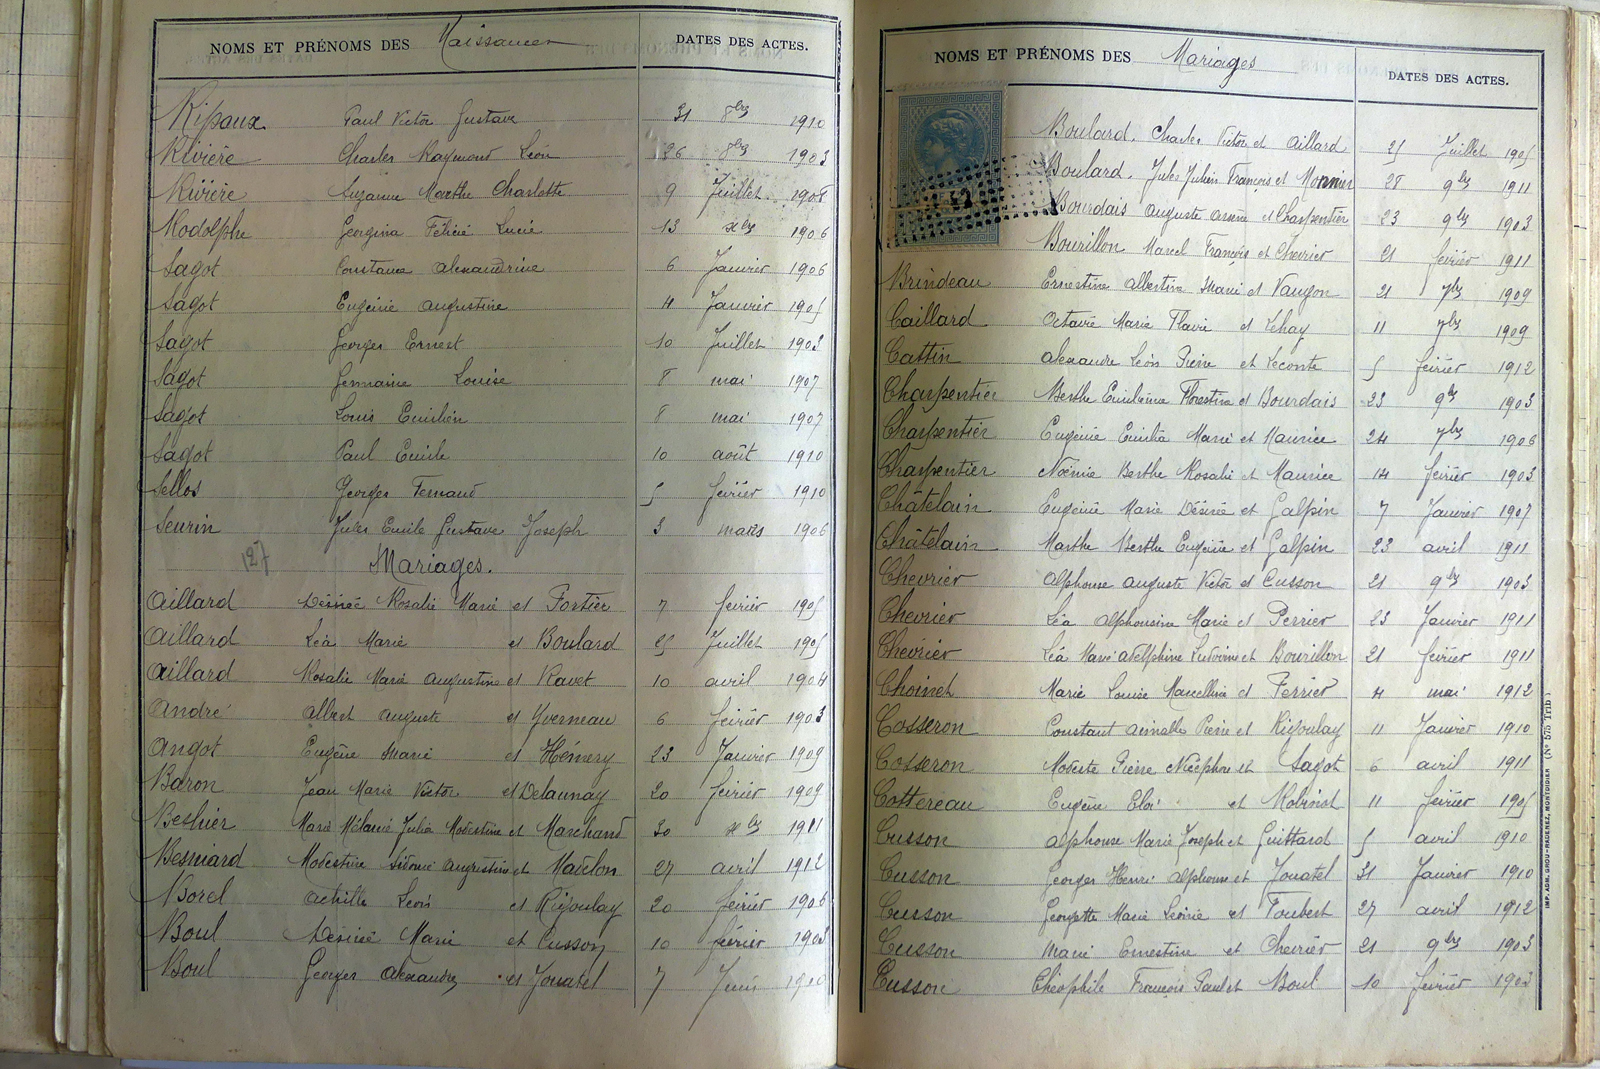 NOMS ET PRÉNOMS DES Naissances DATES DES ACTES.
Ripaux Paul Victor Gustave 31 8bre 1910
Rivière Charles Raymond Léon 26 8bre 1903
Rivière Suzanne Marthe Charlotte 9 Juillet 1908
Rodolphe Georgina Félicie Lucie 13 xbre 1906
Sagot Constance Alexandrine 6 Janvier 1906
Sagot Eugénie Augustine 4 Janvier 1905
Sagot Georges Ernest 10 Juillet 1903
Sagot Germaine Louise 8 mai 1907
Sagot Louis Emilien 8 mai 1907
Sagot Paul Emile 10 août 1910
Sellos Georges Fernand 5 février 1910
Seurin Jules Emile Gustave Joseph 3 mars 1906
127 Mariages.
Aillard Désirée Rosalie Marie et Fortier 7 février 1905
Aillard Léa Marie et Boulard 25 Juillet 1905
Aillard Rosalie Marie Augustine et Ravet 10 avril 1904
André Albert Auguste et Yverneau 6 février 1903
Angot Eugène Marie et Hémery 23 Janvier 1909
Baron Jean Marie Victor et Delaunay 20 février 1909
Beshier Marie Mélanie Julia Modestine et Marchand 30 xbre 1911
Besniard Modestine Sidonie Augustine et Maulon 27 avril 1912
Borel Achille Léon et Rigoulay 20 février 1906
Boul Désirée Marie et Cusson 10 février 1903
Boul Georges Alexandre et Jouatel 7 Juin 1910
NOMS ET PRÉNOMS DES Mariages DATES DES ACTES.
Boulard, Charles Victor et Aillard 25 Juillet 1905
Boulard, Jules Julien François et Monnier 28 9bre 1911
Bourdais Auguste Arsène et Charpentier 23 9bre 1903
Bourillon Marcel François et Chevrier 21 février 1911
Brindeau Ernestine Albertine Marie et Vaugon 21 7bre 1909
Caillard Octavie Marie Flavie et Lehay 11 7bre 1909
Cattin Alexandre Léon Pierre et Leconte 5 février 1912
Charpentier Berthe Emilienne Florestine et Bourdais 23 9bre 1903
Charpentier Eugénie Emilia Marie et Maurice 24 7bre 1906
Charpentier Noémie Berthe Rosalie et Maurice 14 février 1903
Châtelain Eugénie Marie Désirée et Galpin 7 Janvier 1907
Châtelain Marthe Berthe Eugénie et Galpin 23 avril 1911
Chevrier Alphonse Auguste Victor et Cusson 21 9bre 1903
Chevrier Léa Alphonsine Marie et Perrier 23 Janvier 1911
Chevrier Léa Marie Adelphine Ludovine et Bourillon 21 février 1911
Choinet Marie Louise Marcelline et Perrier 4 mai 1912
Cosseron Constant Aimable Pierre et Rigoulay 11 Janvier 1910
Cosseron Modeste Pierre Nicéphore et Sagot 6 avril 1911
Cottereau Eugène Eloi et Robinot 11 février 1905
Cusson Alphonse Marie Joseph et Guittard 5 avril 1910
Cusson Georges Henri Alphonse et Jouatel 31 Janvier 1910
Cusson Georgette Marie Léonie et Foubert 27 avril 1912
Cusson Marie Ernestine et Chevrier 21 9bre 1903
Cusson Théophile François Paul et Boul 10 février 1903
IMP. ADM. GROU-RADENEZ, MONTDIDIER (N° 575 Trib)